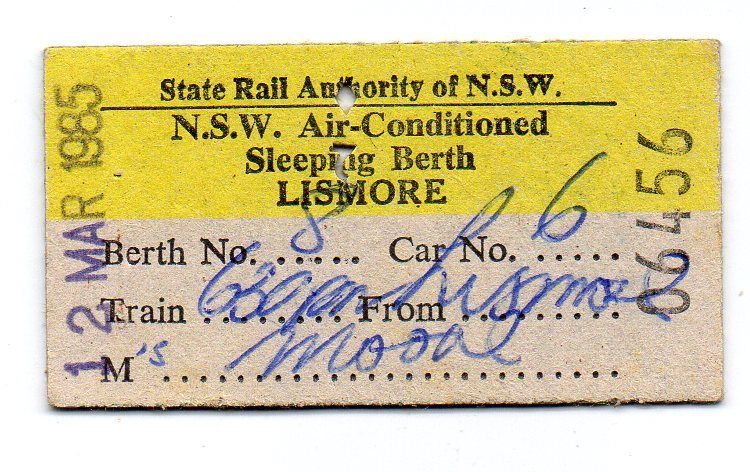 State Rail Authority of N.S.W.
N.S.W. Air-Conditioned
Sleeping Berth
LISMORE
Berth No. 8 ..... Car No. 6 .....
Train ........ From Lismore .........
M's ............................
12 MAR 1985
06456